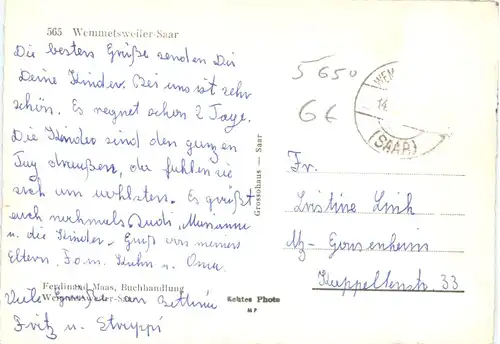 565 Wemmetsweiler-Saar
Die besten Grüße senden Dir
Deine Kinder. Bei uns ist sehr
schön. Es regnet schon 2 Tage.
Die Kinder sind den ganzen
Tag draußen, da fühlen sie
sich am wohlsten. Es grüßt
euch nochmals Rudi, Marianne
u. die Kinder. Gruß von meinen
Eltern. Fam. Kuhn u. Oma.
Ferdinand Maas, Buchhandlung
Wemmetsweiler-Saar
Viele Grüße an Bettina
Fritz u. Struppi
Grossohaus — Saar
Echtes Photo
MP
5650
6€
WEM
14
(SAAR)
Fr.
Link
Mz-Gonsenheim
33